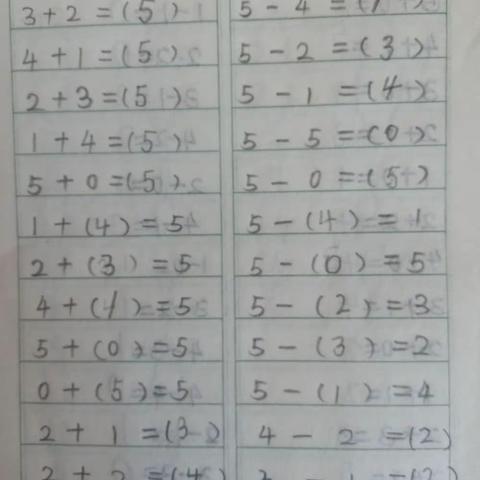 3 + 2 = (5) 5 - 4 = (1)
4 + 1 = (5) 5 - 2 = (3)
2 + 3 = (5) 5 - 1 = (4)
1 + 4 = (5) 5 - 5 = (0)
5 + 0 = (5) 5 - 0 = (5)
1 + (4) = 5 5 - (4) = 1
2 + (3) = 5 5 - (0) = 5
4 + (1) = 5 5 - (2) = 3
5 + (0) = 5 5 - (3) = 2
0 + (5) = 5 5 - (1) = 4
2 + 1 = (3) 4 - 2 = (2)
2 + 2 = (4) 3 - 1 = (2)